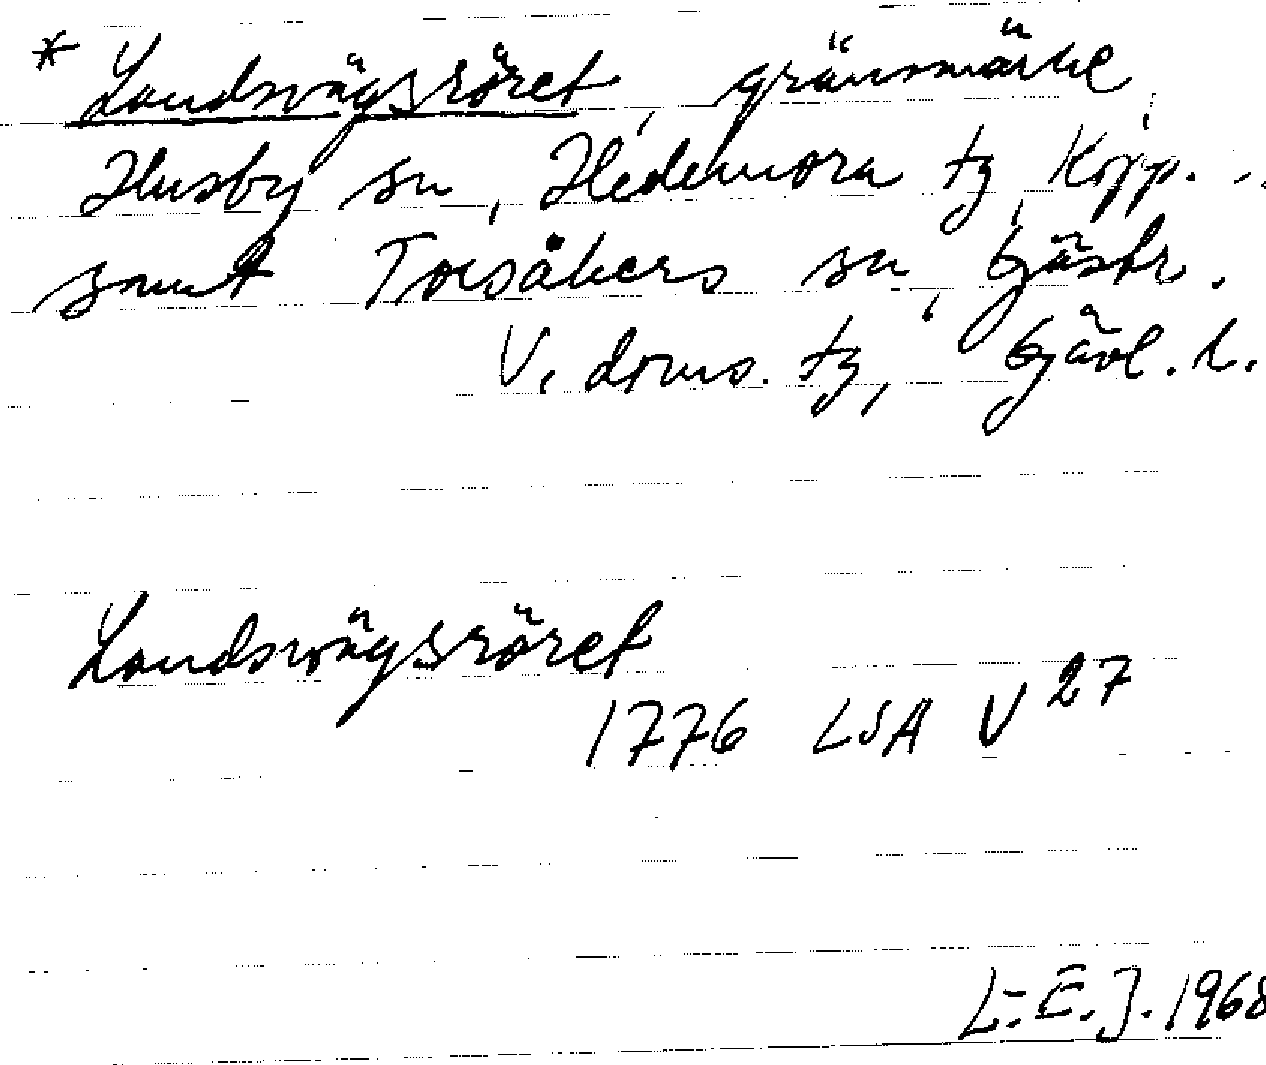 * Landsvägsröret, gränsmärke,
Husby sn, Hedemora tg, Kopp. ..
samt Torsåkers sn, Gästr.
V. doms. tg, Gävl. l.
Landsvägsröret
1776 LSA V 27
L.E.J. 1968